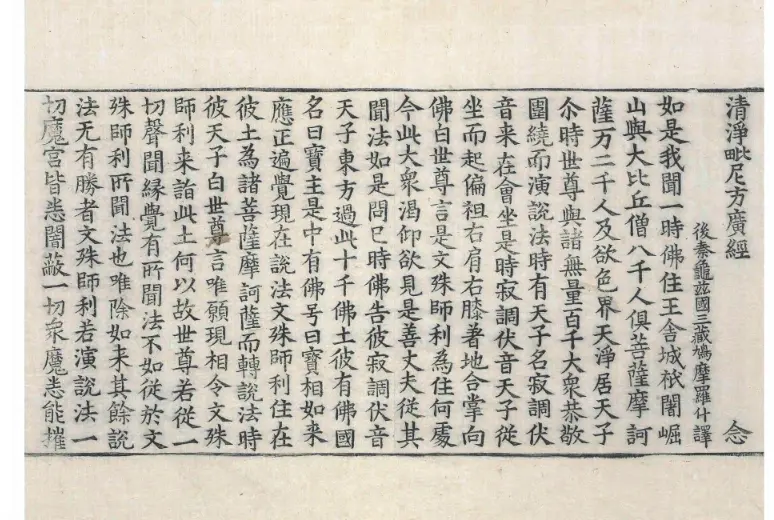 清淨毗尼方廣經 念
後秦龜茲國三藏鳩摩羅什譯
如是我聞一時佛住王舍城祇闍崛
山與大比丘僧八千人俱菩薩摩訶
薩万二千人及欲色界天淨居天子
尒時世尊與諸無量百千大衆恭敬
圍繞而演說法時有天子名寂調伏
音来在會坐是時寂調伏音天子從
坐而起偏袒右肩右膝著地合掌向
佛白世尊言是文殊師利為住何處
今此大衆渴仰欲見是善丈夫從其
聞法如是問已時佛告彼寂調伏音
天子東方過此十千佛土彼有佛國
名曰寶主是中有佛号曰寶相如来
應正遍覺現在說法文殊師利住在
彼土為諸菩薩摩訶薩而轉說法時
彼天子白世尊言唯願現相令文殊
師利来詣此土何以故世尊若從一
切聲聞縁覺有所聞法不如從於文
殊師利所聞法也唯除如来其餘說
法无有勝者文殊師利若演說法一
切魔宮皆悉闇蔽一切衆魔悉能摧